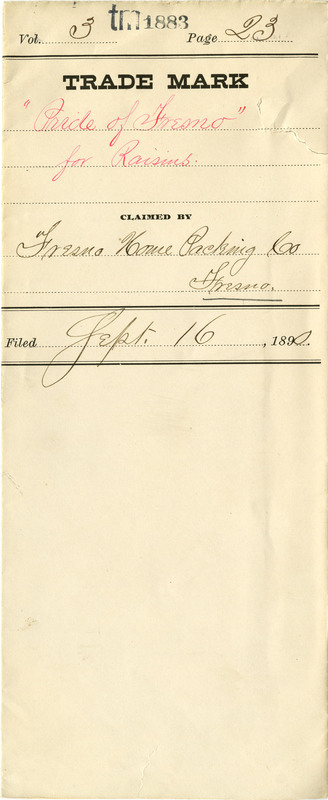 tm 1883
Vol. 3 Page 23
TRADE MARK
"Pride of Fresno"
for Raisins.
CLAIMED BY
Fresno Home Packing Co
Fresno.
Filed Sept. 16, 1890.